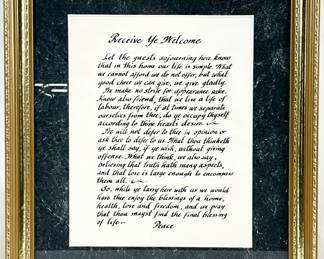 Receive Ye Welcome
Let the guests sojourning here know
that in this home our life is simple. What
we cannot afford we do not offer, but what
good cheer we can give, we give gladly.
We make no strive for appearance sake.
Know also friend, that we live a life of
labour, therefore, if at times we separate
ourselves from thee, do ye occupy thyself
according to thine heart's desire.
We will not defer to thee in opinion or
ask thee to defer to us. What thou thinketh
ye shall say, if ye wish, without giving
offense. What we think, we also say,
believing that truth hath many aspects,
and that love is large enough to encompass
them all.
So, while ye tarry here with us we would
have thee enjoy the blessings of a home,
health, love and freedom, and we pray
that thou mayst find the final blessing
of life -
Peace